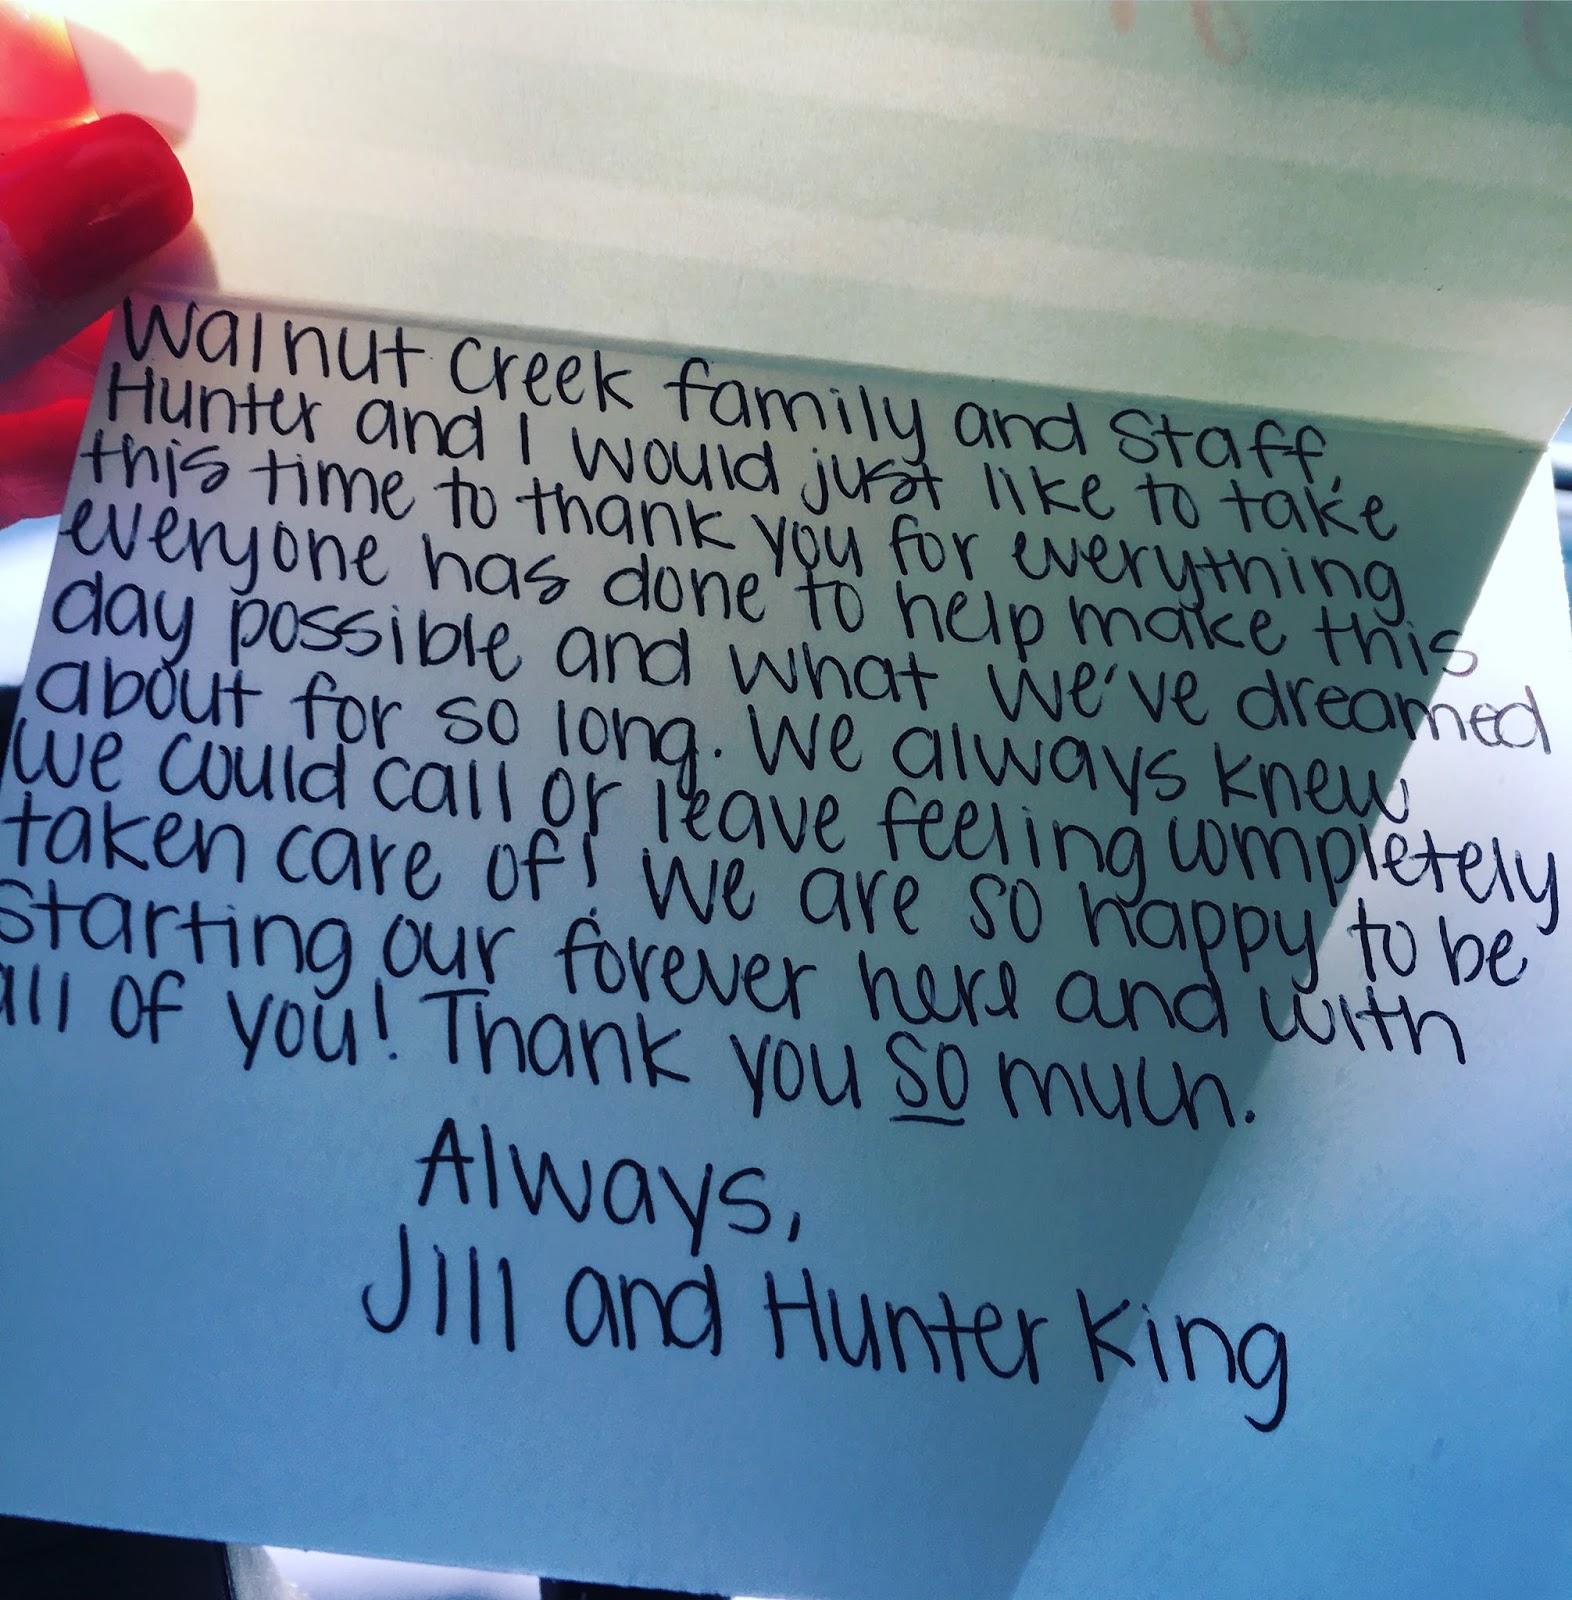 Walnut Creek family and Staff,
Hunter and I would just like to take
this time to thank you for everything
everyone has done to help make this
day possible and what we've dreamed
about for so long. We always knew
we could call or leave feeling completely
taken care of! We are so happy to be
starting our forever here and with
all of you! Thank you so much.
Always,
Jill and Hunter King